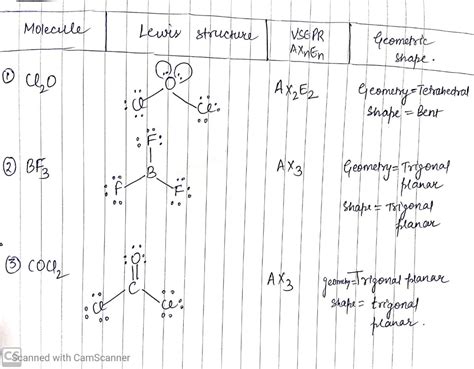 Molecule Lewis structure VSEPR Geometric
AXnEn shape.
① Cl2O O AX2E2 Geometry=Tetrahedral
Cl Cl Shape = Bent
F
② BF3 B AX3 Geometry= Trigonal
F F planar
Shape = Trigonal
planar
③ COCl2 O AX3 geometry=Trigonal planar
C shape= trigonal
Cl Cl planar.
CS Scanned with CamScanner